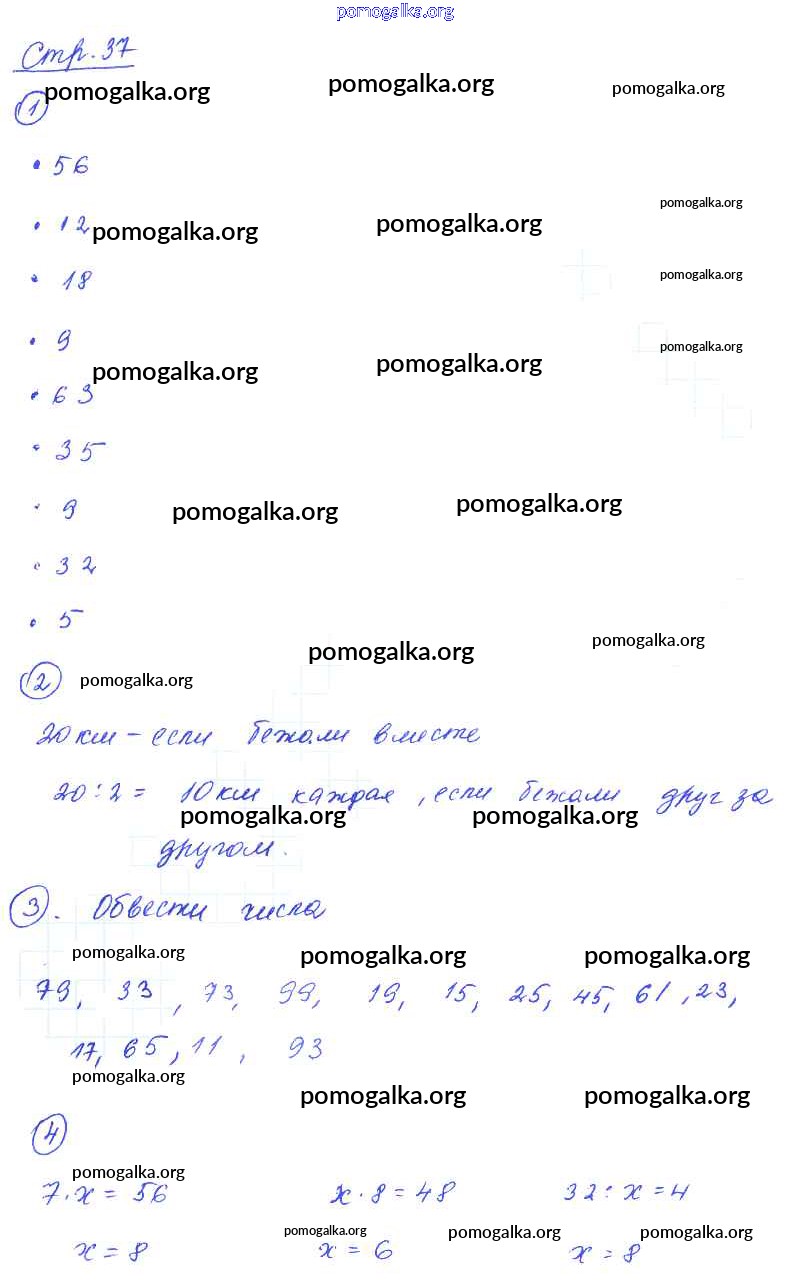 pomogalka.org
Стр. 37
pomogalka.org pomogalka.org pomogalka.org
1
• 56
pomogalka.org
• 12 pomogalka.org pomogalka.org
• 18 pomogalka.org
• 9 pomogalka.org
pomogalka.org pomogalka.org
• 63
• 35
• 9 pomogalka.org pomogalka.org
• 32
• 5
pomogalka.org pomogalka.org
2 pomogalka.org
20 км – если бежали вместе
20 : 2 = 10 км каждая, если бежали друг за
pomogalka.org pomogalka.org
другом.
3. Обвести числа
pomogalka.org pomogalka.org pomogalka.org
79, 33, 73, 99, 19, 15, 25, 45, 61, 23,
17, 65, 11, 93
pomogalka.org pomogalka.org pomogalka.org
4
pomogalka.org
7 · x = 56 x · 8 = 48 32 : x = 4
pomogalka.org pomogalka.org pomogalka.org
x = 8 x = 6 x = 8